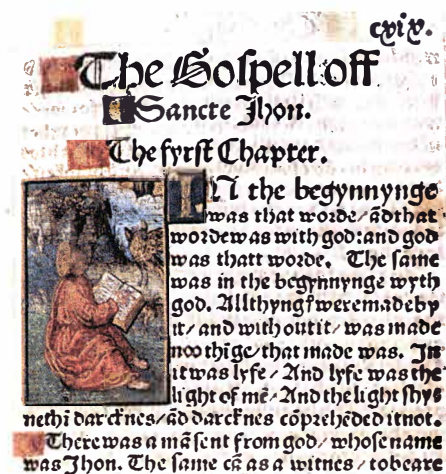 cxix.
The Gospell off
Sancte Jhon.
The fyrst Chapter.
IN the begynnynge
was that worde/ ãd that
worde was with god: and god
was thatt worde. The same
was in the begynnynge wyth
god. All thyngꝭ were made by
it/ and with out it/ was made
noo thige/ that made was. In
it was lyfe/ And lyfe was the
light of mē/ And the light shyꝭ
neth ĩ darcknes/ ãd darcknes cõprehēded it not.
There was a mã sent from god/ whose name
was Jhon. The same cã as a witnes/ to beare